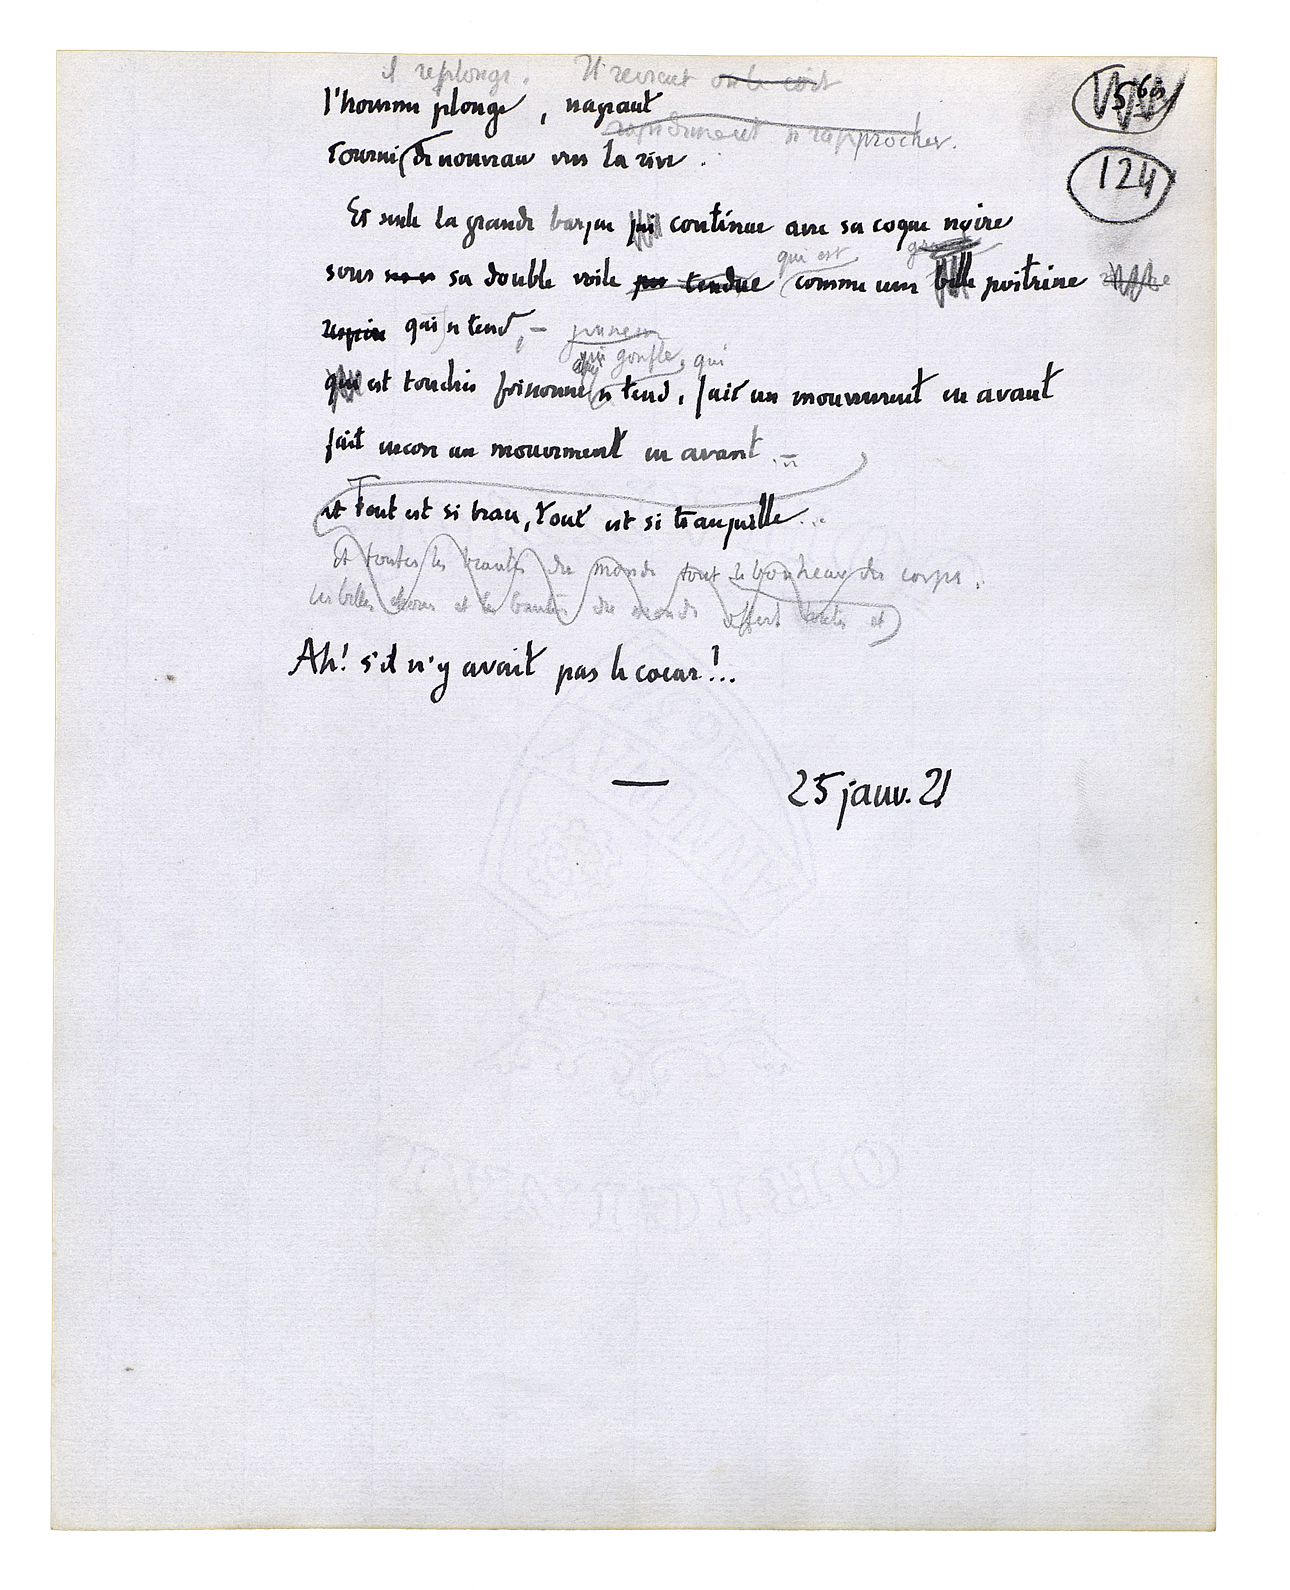 il replonge. Il revient on le voit
56 bis
l'homme plonge, nageant
rapidement se rapprocher.
124
Tourné de nouveau vers la rive.
Et seule la grande barque qui continue avec sa coque noire
qui est
sous sa double voile tendue comme une belle poitrine
respire qui se tend, –
qui gonfle, qui
qui est touchée frissonne se tend, fait un mouvement en avant
fait encore un mouvement en avant
et Tout est si beau, Tout est si tranquille...
Et toutes les beautés du monde tout le bonheur des corps.
les belles choses et les beautés du monde offert toutes et
Ah! s'il n'y avait pas le coeur!...
— 25 janv. 21